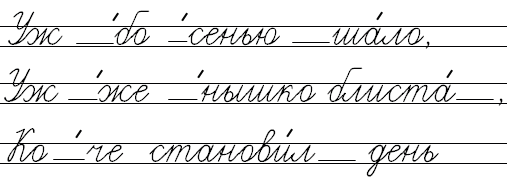 Уж __́бо _́сенью __ша́ло,
Уж _́же _́нышко блиста́__,
Ко_́че станови́л__ день